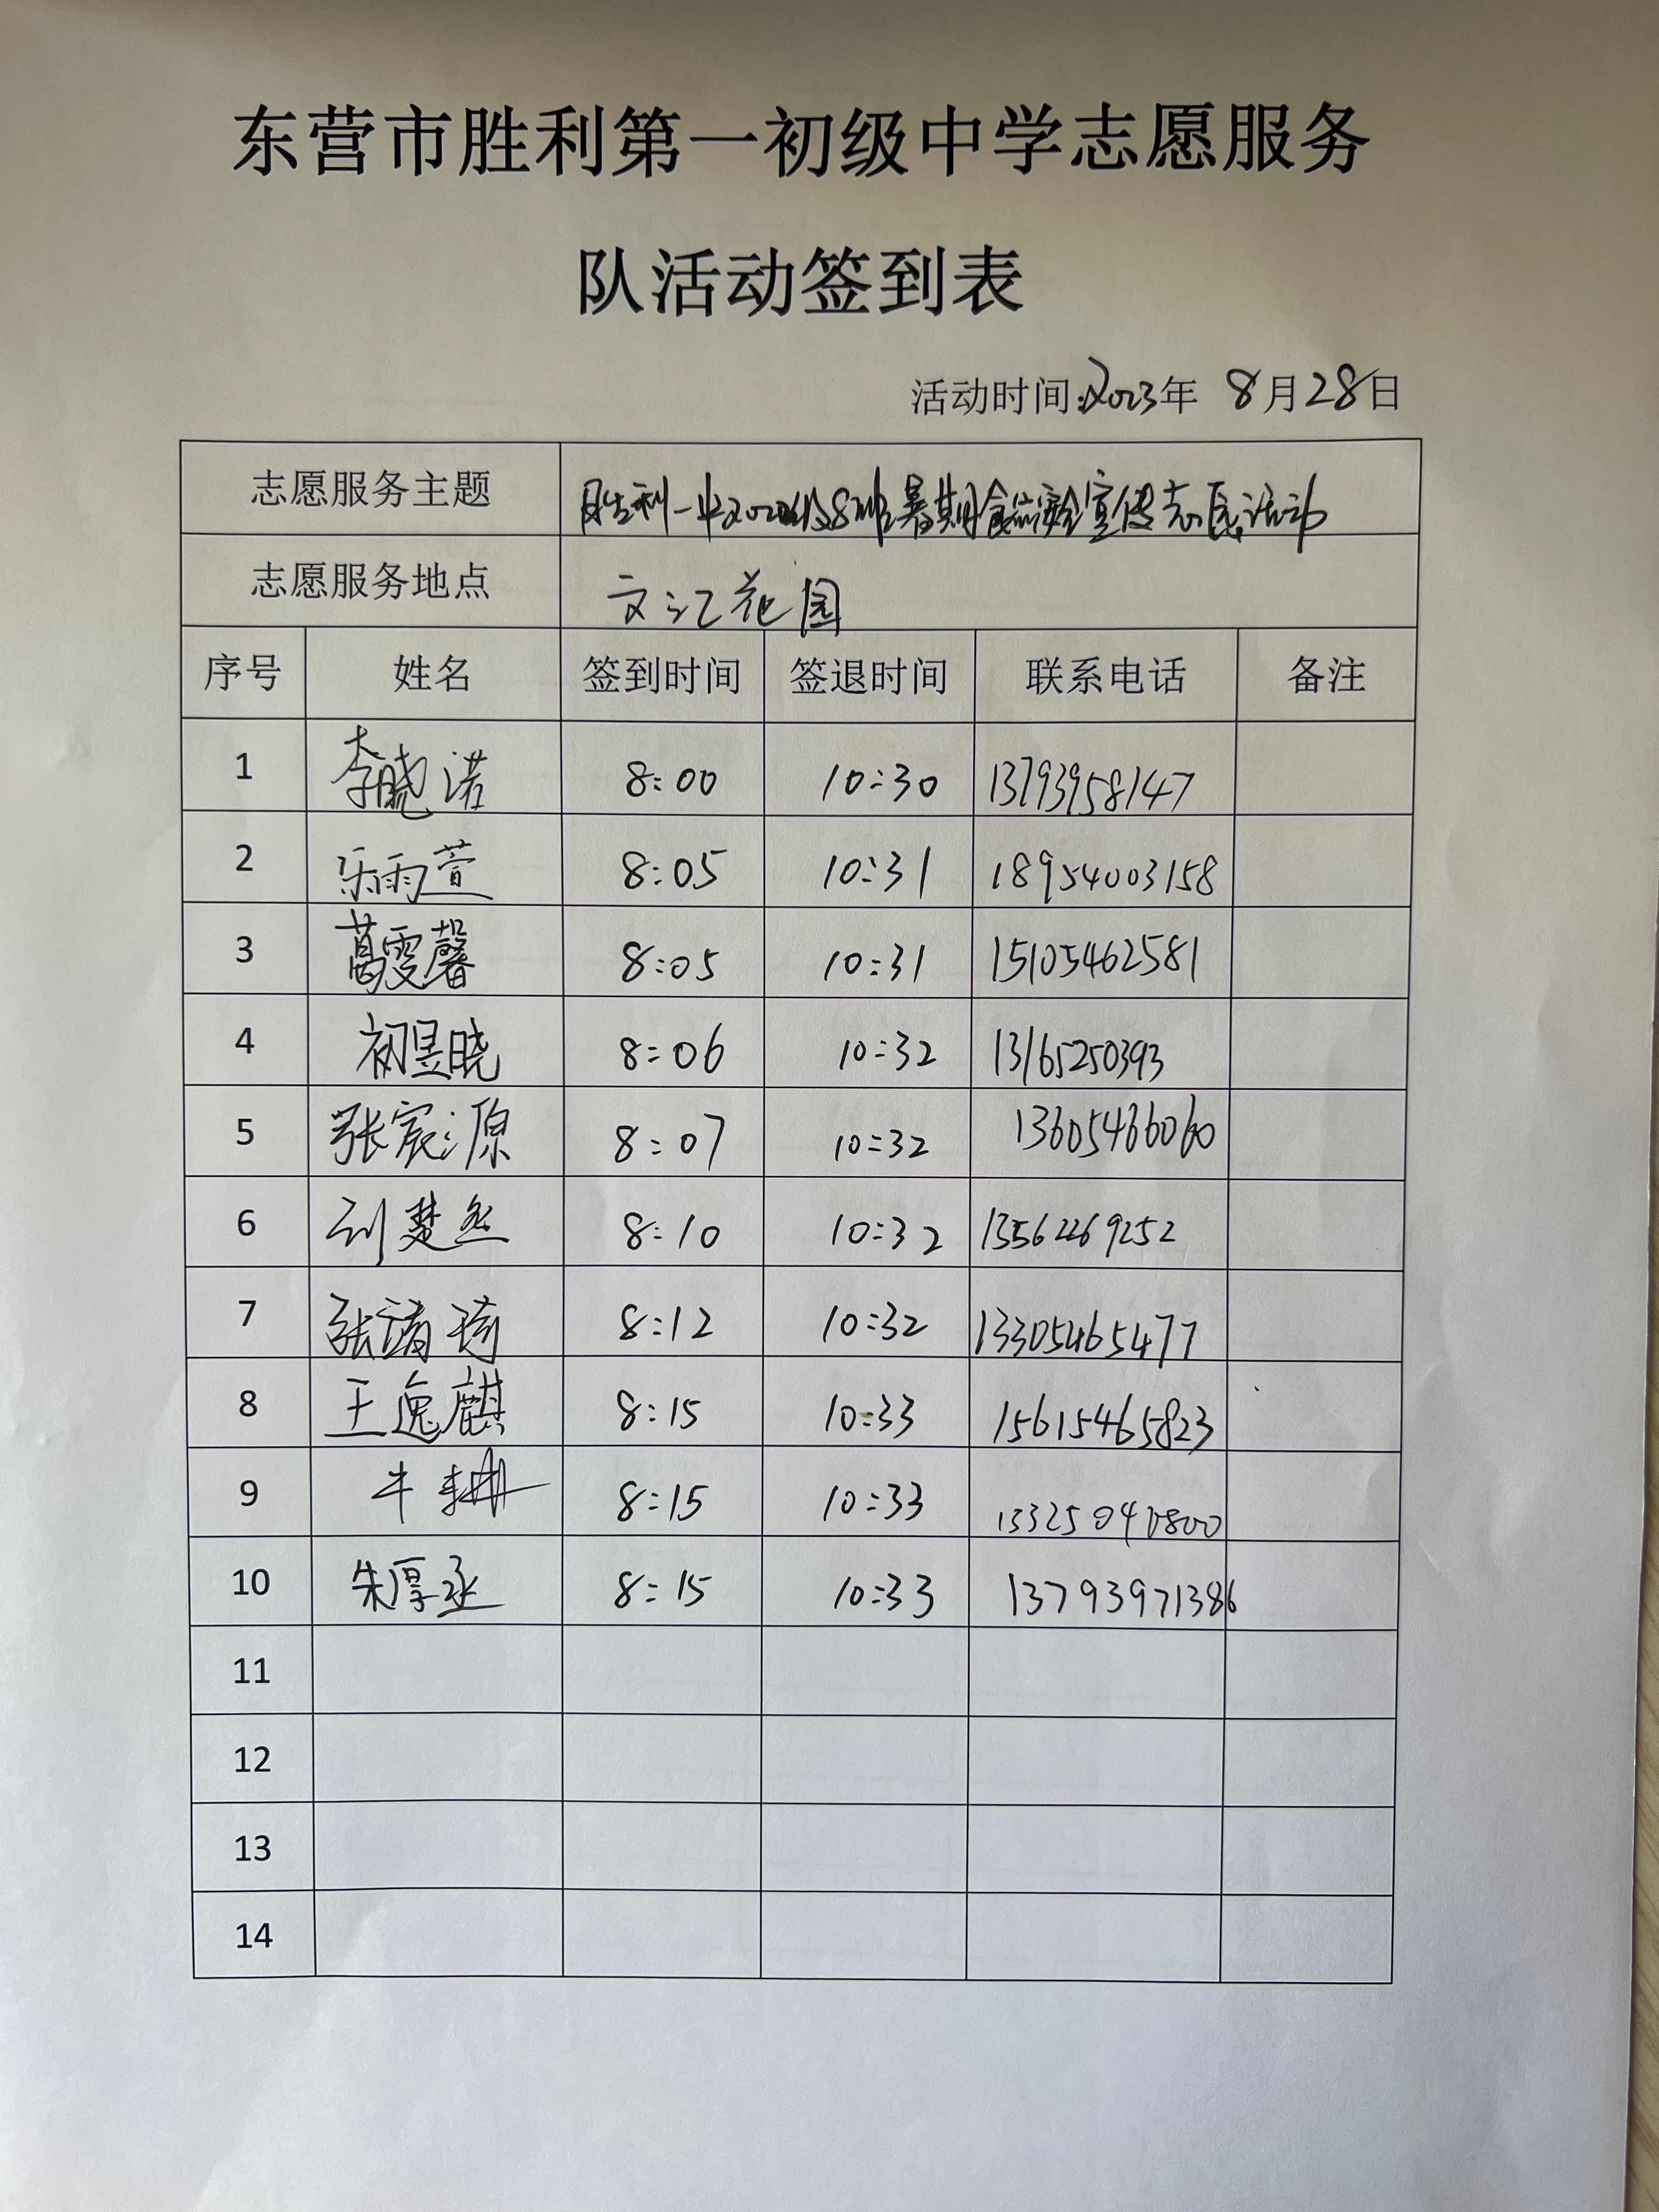 东营市胜利第一初级中学志愿服务
队活动签到表
活动时间:2023年 8月28日
志愿服务主题 胜利一中2022级8班暑期食品安全宣传志愿活动
志愿服务地点 文汇花园
序号 姓名 签到时间 签退时间 联系电话 备注
1 李晓诺 8:00 10:30 13793958147
2 乐雨萱 8:05 10:31 18954003158
3 葛雯馨 8:05 10:31 15105462581
4 初昱晓 8:06 10:32 13165250393
5 张宸源 8:07 10:32 13605466060
6 刘楚然 8:10 10:32 13562269252
7 张靖琦 8:12 10:32 13305465477
8 王逸麒 8:15 10:33 15615465823
9 牛 8:15 10:33
10 朱厚丞 8:15 10:33 13793971386
11
12
13
14